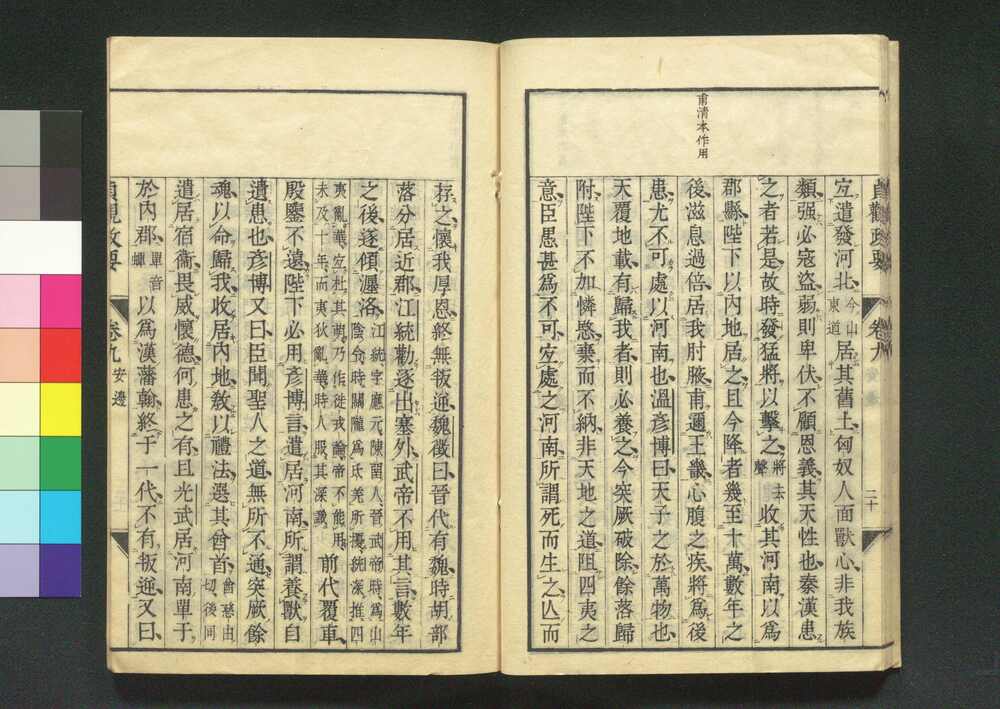 甫清本作用
貞觀政要 卷九 二十
宜遣發河北今山東道居其舊土匈奴人面獸心非我族
類强必寇盜弱則卑伏不顧恩義其天性也秦漢患
之者若是故時發猛將以擊之將去聲收其河南以爲
郡縣陛下以內地居之且今降者幾至十萬數年之
後滋息過倍居我肘腋甫邇王畿心腹之疾將爲後
患尤不可處以河南也溫彥博曰天子之於萬物也
天覆地載有歸我者則必養之今突厥破除餘落歸
附陛下不加憐愍棄而不納非天地之道阻四夷之
意臣愚甚爲不可宜處之河南所謂死而生之亾而
存之懷我厚恩終無叛逆魏徵曰晉代有魏時胡部
落分居近郡江統勸逐出塞外武帝不用其言數年
之後遂傾瀍洛江統字應元陳留人晉武帝時爲山陰令時關隴爲氐羌所擾統深推四夷亂華宜杜其萌乃作徙戎論帝不能用未及十年而夷狄亂華時人服其深識前代覆車
殷鑒不遠陛下必用彥博言遣居河南所謂養獸自
遺患也彥博又曰臣聞聖人之道無所不通突厥餘
魂以命歸我收居內地敎以禮法選其酋首酋慈由切後同
遣居宿衞畏威懷德何患之有且光武居河南單于
於內郡單音蟬以爲漢藩翰終于一代不有叛逆又曰
貞觀政要 卷九 安邊